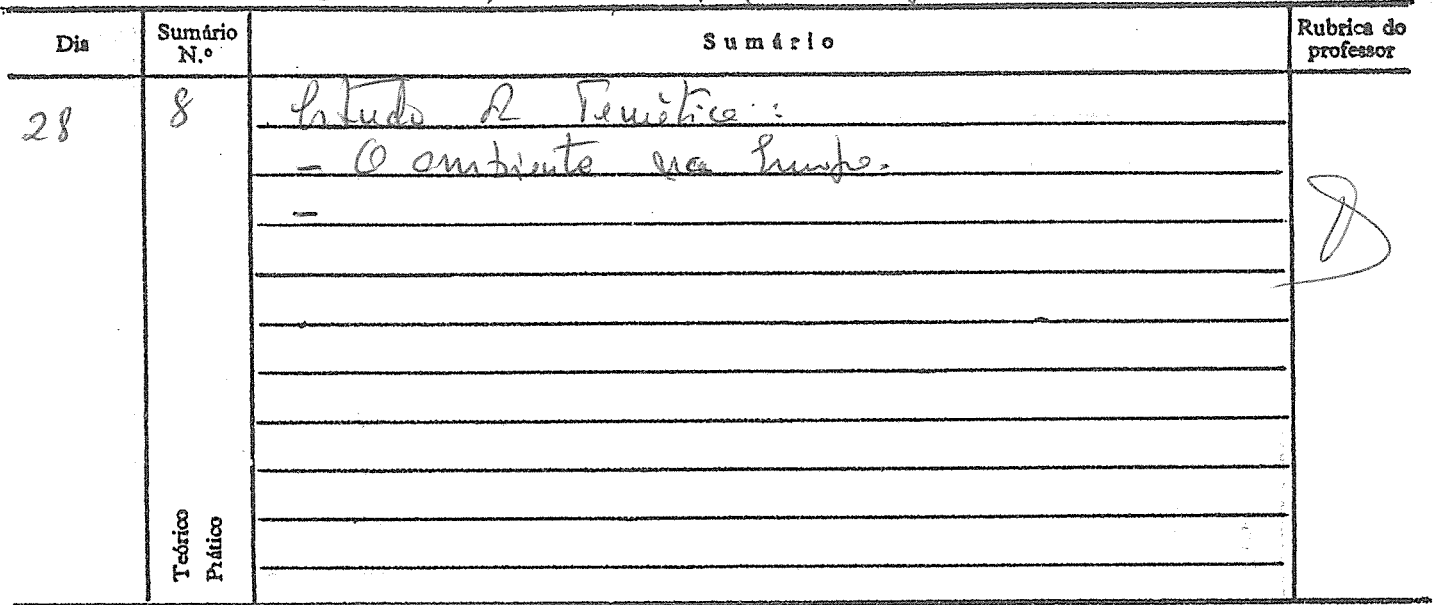 Dia
Sumário N.º
Sumário
Rubrica do professor
28
8
Estudo da Temática:
- O ambiente na Europa.
-
Teórico
Prático